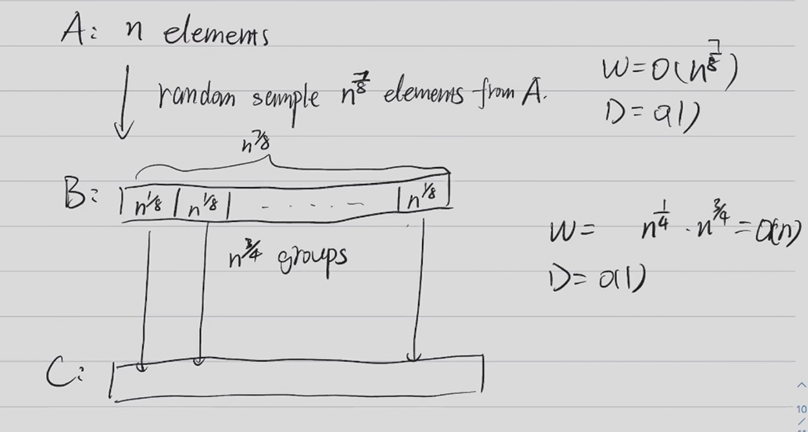 A: n elements
random sample n^{7/8} elements from A.
W=O(n^{7/8})
D=O(1)
n^{7/8}
B: n^{1/8} n^{1/8} ...... n^{1/8}
n^{3/4} groups
W= n^{1/4}·n^{3/4}=O(n)
D=O(1)
C:
10